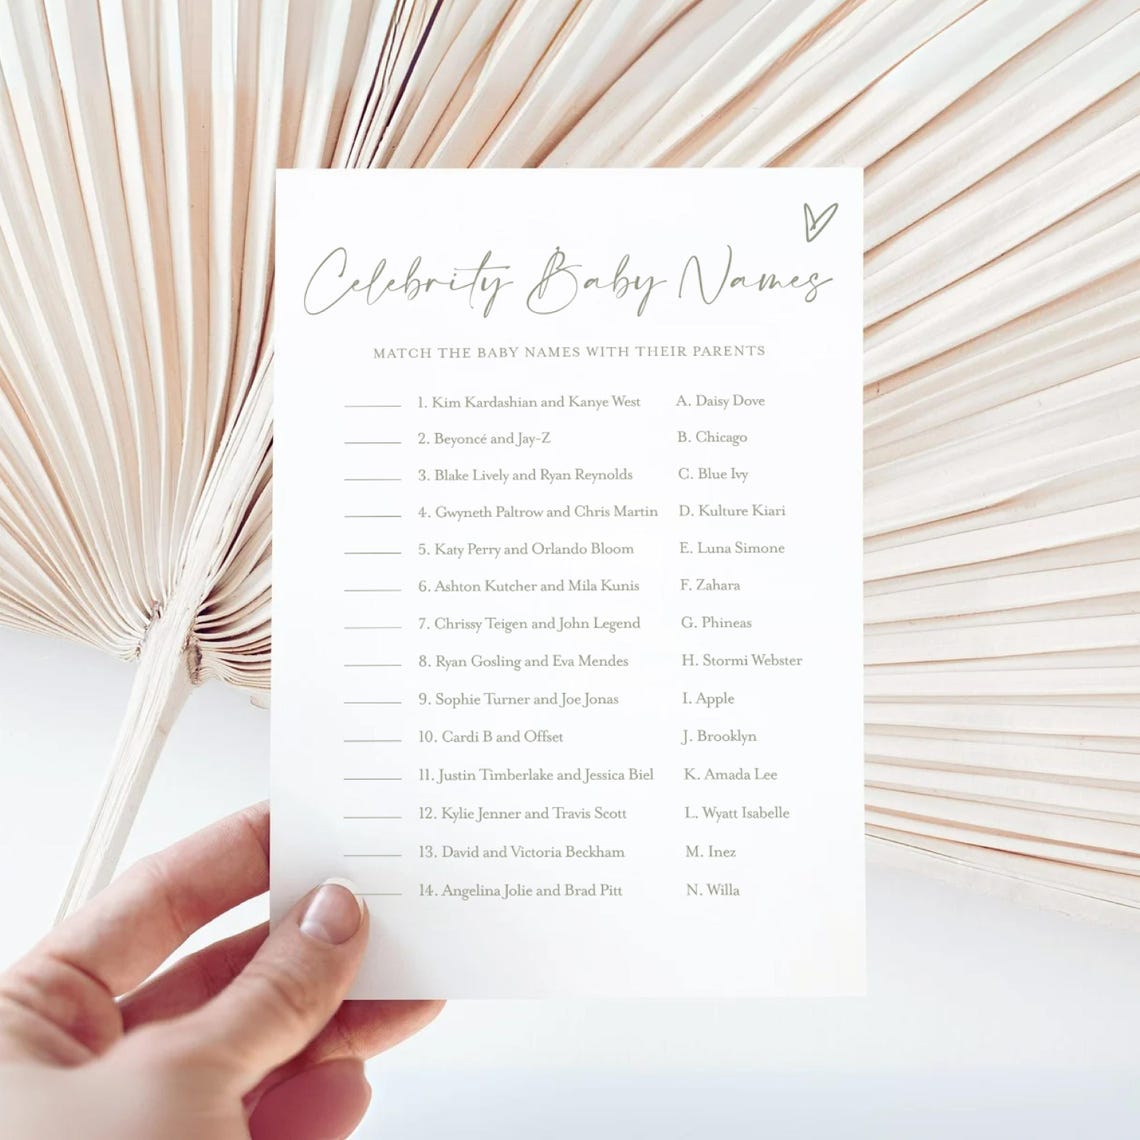 Celebrity Baby Names
MATCH THE BABY NAMES WITH THEIR PARENTS
____ 1. Kim Kardashian and Kanye West A. Daisy Dove
____ 2. Beyoncé and Jay-Z B. Chicago
____ 3. Blake Lively and Ryan Reynolds C. Blue Ivy
____ 4. Gwyneth Paltrow and Chris Martin D. Kulture Kiari
____ 5. Katy Perry and Orlando Bloom E. Luna Simone
____ 6. Ashton Kutcher and Mila Kunis F. Zahara
____ 7. Chrissy Teigen and John Legend G. Phineas
____ 8. Ryan Gosling and Eva Mendes H. Stormi Webster
____ 9. Sophie Turner and Joe Jonas I. Apple
____ 10. Cardi B and Offset J. Brooklyn
____ 11. Justin Timberlake and Jessica Biel K. Amada Lee
____ 12. Kylie Jenner and Travis Scott L. Wyatt Isabelle
____ 13. David and Victoria Beckham M. Inez
____ 14. Angelina Jolie and Brad Pitt N. Willa